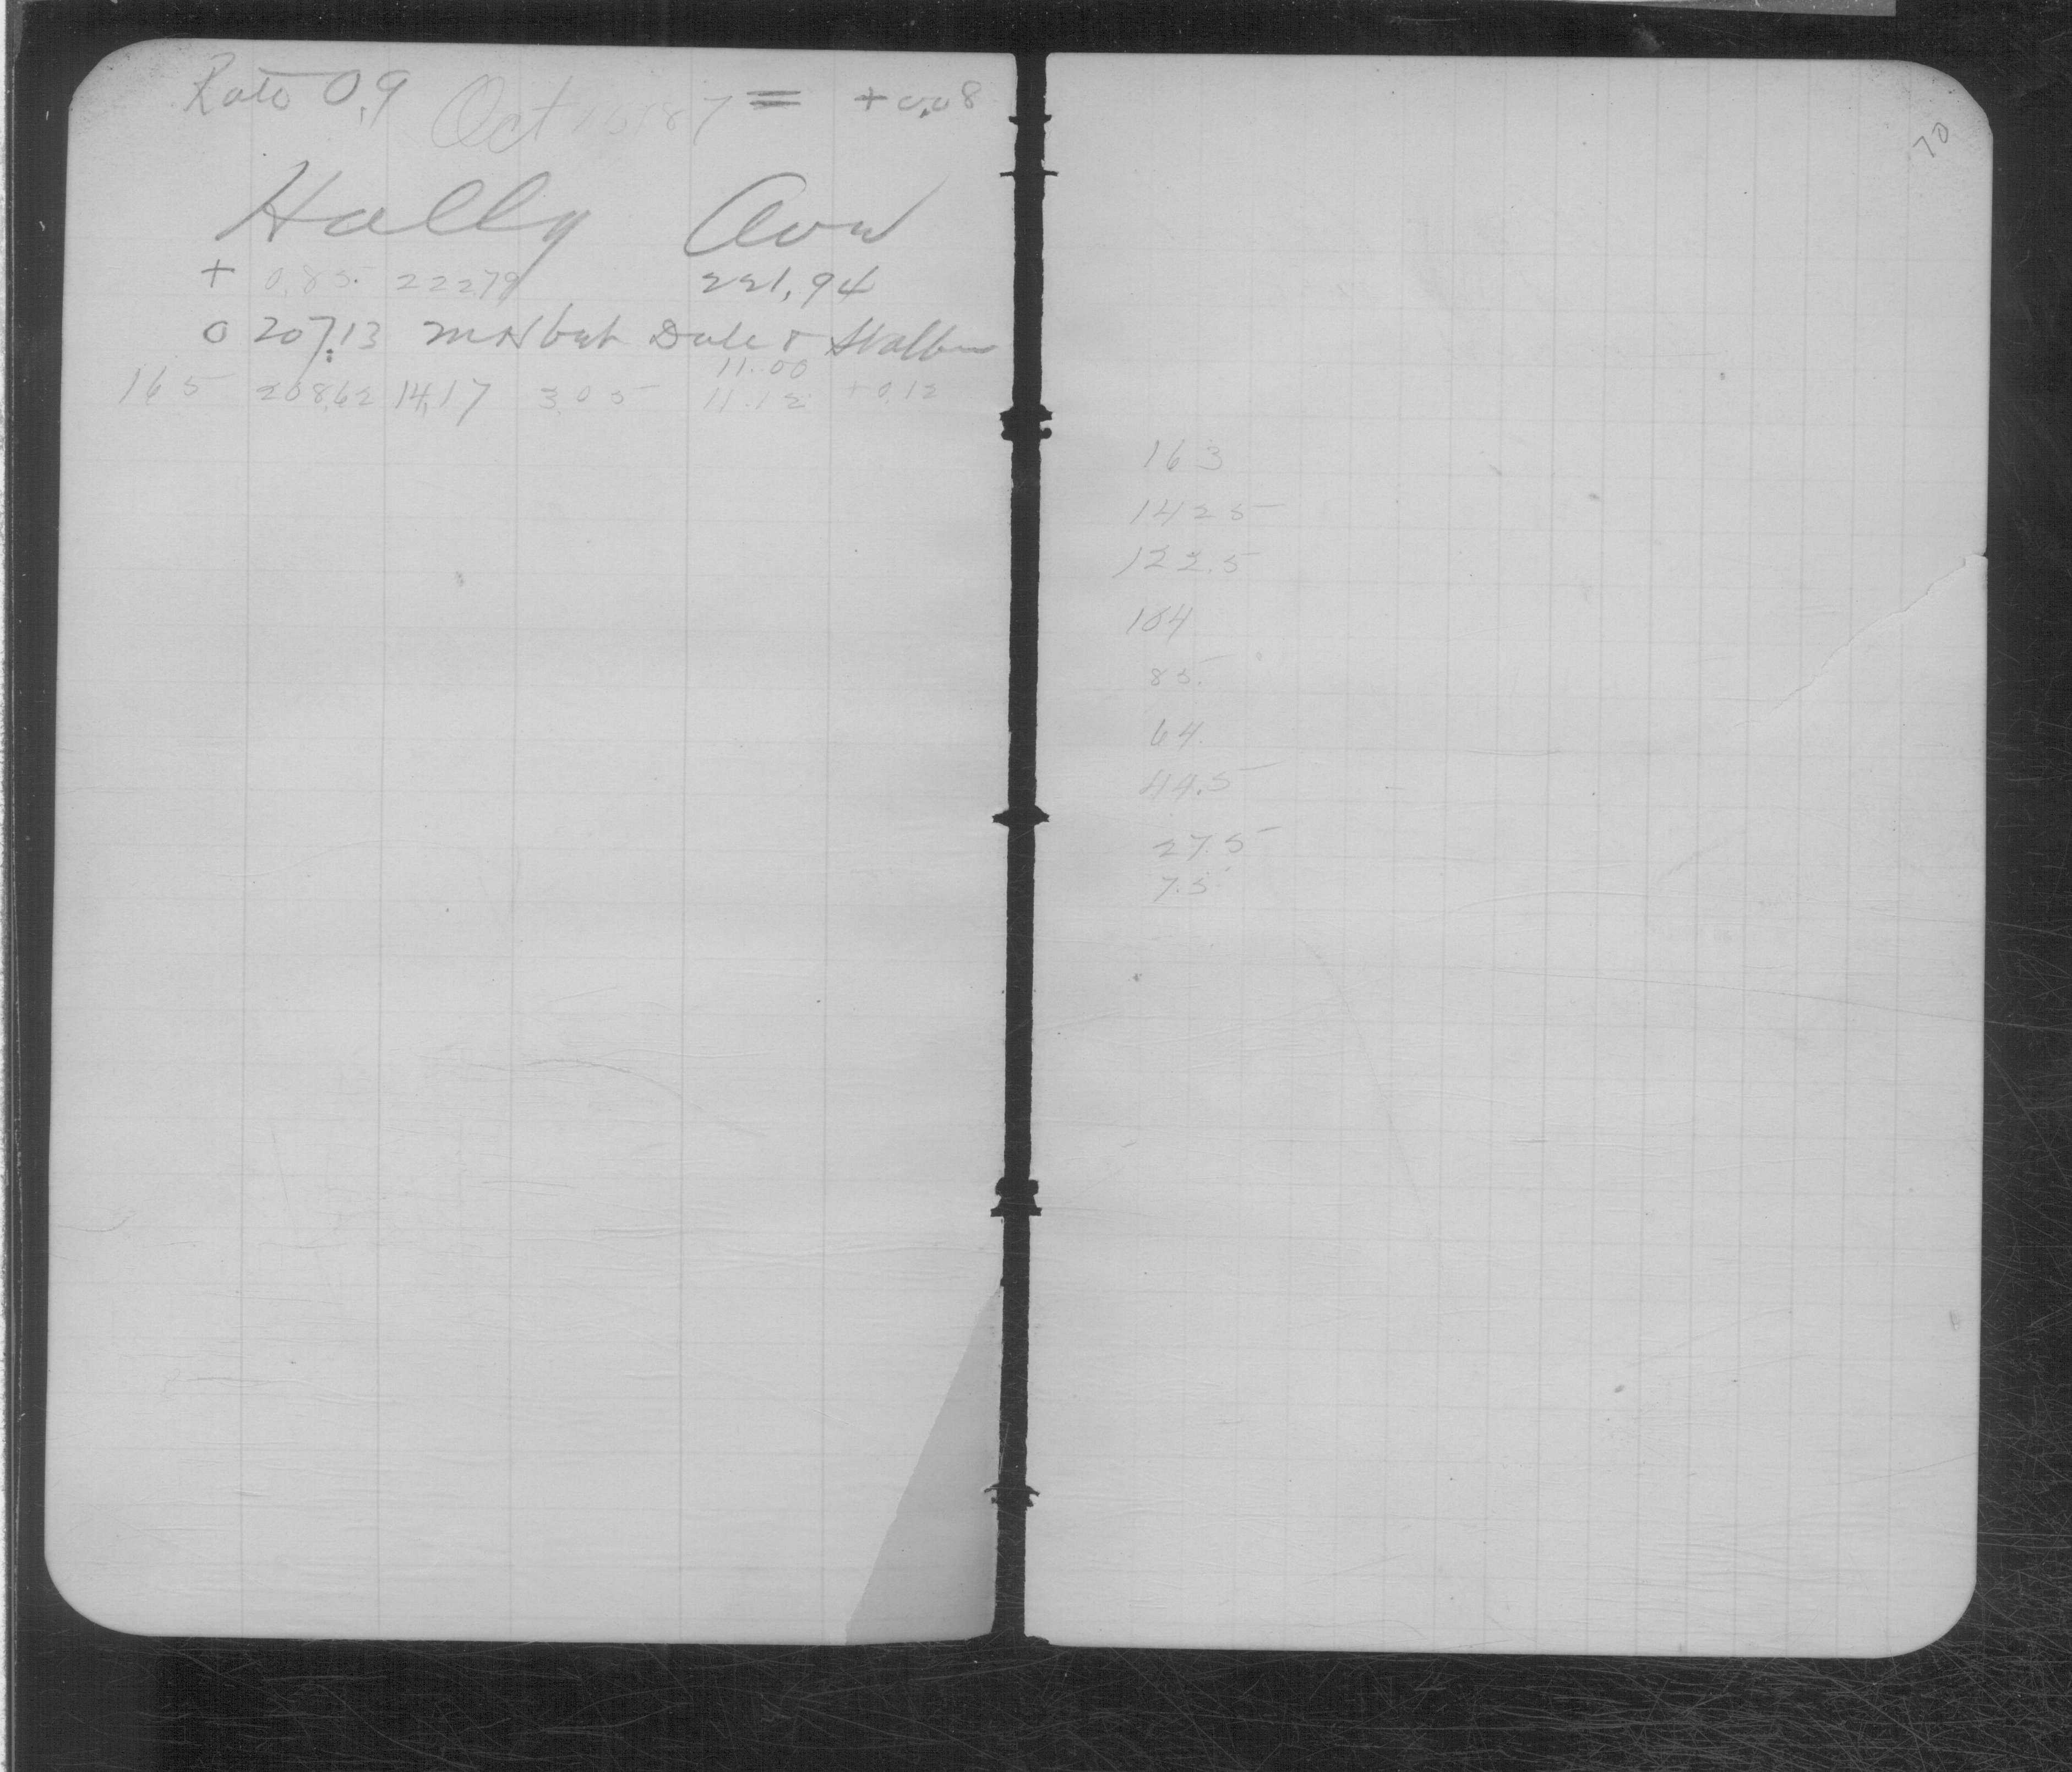 Rate 0.9 Oct 187 = +0.08
Holly Ave
+ 0.85 222.79 221.94
0 207.13 MH but Dale &
11.00
165 208.62 14.17 3.05 11.12 +0.12
70
163
142 5
122.5
104
85.
64.
44.5
27.5
7.5